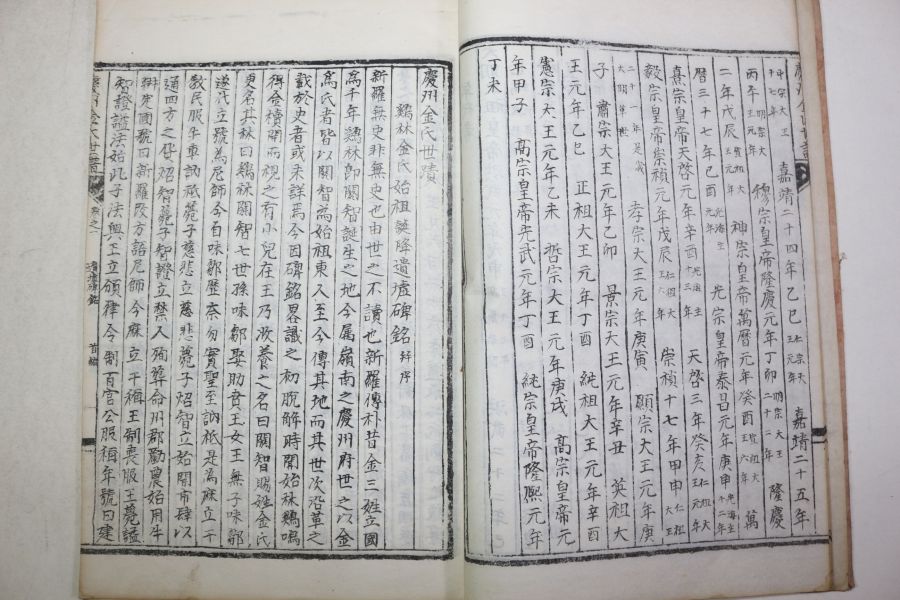 嘉靖二十四年乙巳 仁宗大王元年 嘉靖二十五年
丙午 明宗大王元年 穆宗皇帝隆慶元年丁卯 明宗大王二十二年 隆慶
二年戊辰 宣祖大王元年 神宗皇帝萬曆元年癸酉 宣祖大王六年 萬
曆三十七年己酉 光海主元年 光宗皇帝泰昌元年庚申 光海主十二年
熹宗皇帝天啓元年辛酉 光海主十三年 天啓三年癸亥 仁祖大王元年
毅宗皇帝崇禎元年戊辰 仁祖大王六年 崇禎十七年甲申 仁祖大王
二十一年是歲大明革世 孝宗大王元年庚寅 顯宗大王元年庚
子 肅宗大王元年乙卯 景宗大王元年辛丑 英祖大
王元年乙巳 正祖大王元年丁酉 純祖大王元年辛酉
憲宗大王元年乙未 哲宗大王元年庚戌 高宗皇帝元
年甲子 高宗皇帝光武元年丁酉 純宗皇帝隆熙元年
丁未
慶州金氏世蹟
鷄林金氏始祖誕降遺墟碑銘 幷序
新羅無史非無史也由世之不讀也新羅傳朴昔金三姓立國
爲千年鷄林卽閼智誕生之地今屬嶺南之慶州府世之以金
爲氏者皆以閼智爲始祖東入至今傳其地而其世次沿革之
載於史者或未詳焉今因碑銘畧識之初脫解時聞始林鷄鳴
得金櫝開而視之有小兒在王乃收養之名曰閼智賜姓金氏
更名其林曰鷄林閼智七世孫味鄒娶助賁王女王無子味鄒
遂代立號爲尼師今自味鄒歷奈勿實聖至訥祇是爲麻立干
敎民服牛車訥祇薨子慈悲立慈悲薨子炤智立始開市肆以
通四方之貨炤智薨子智證立禁人殉葬命州郡勸農始用牛
耕定國號曰新羅改方語尼師今麻立干稱王制喪服王薨諡
智證諡法始此子法興王立頒律令制百官公服稱年號曰建
慶州金氏世譜 卷之一 遺墟碑銘 首編